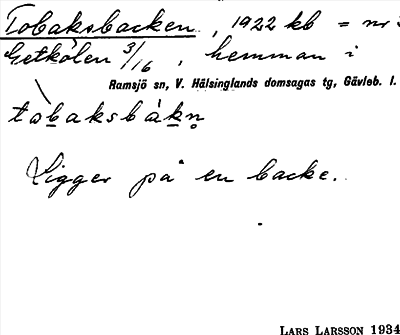 Tobaksbacken, 1922 kb = nr
Getkölen 3/16, hemman i
Ramsjö sn, V. Hälsinglands domsagas tg, Gävleb. l.
tòbaksbàkn̥
Ligger på en backe.
LARS LARSSON 1934